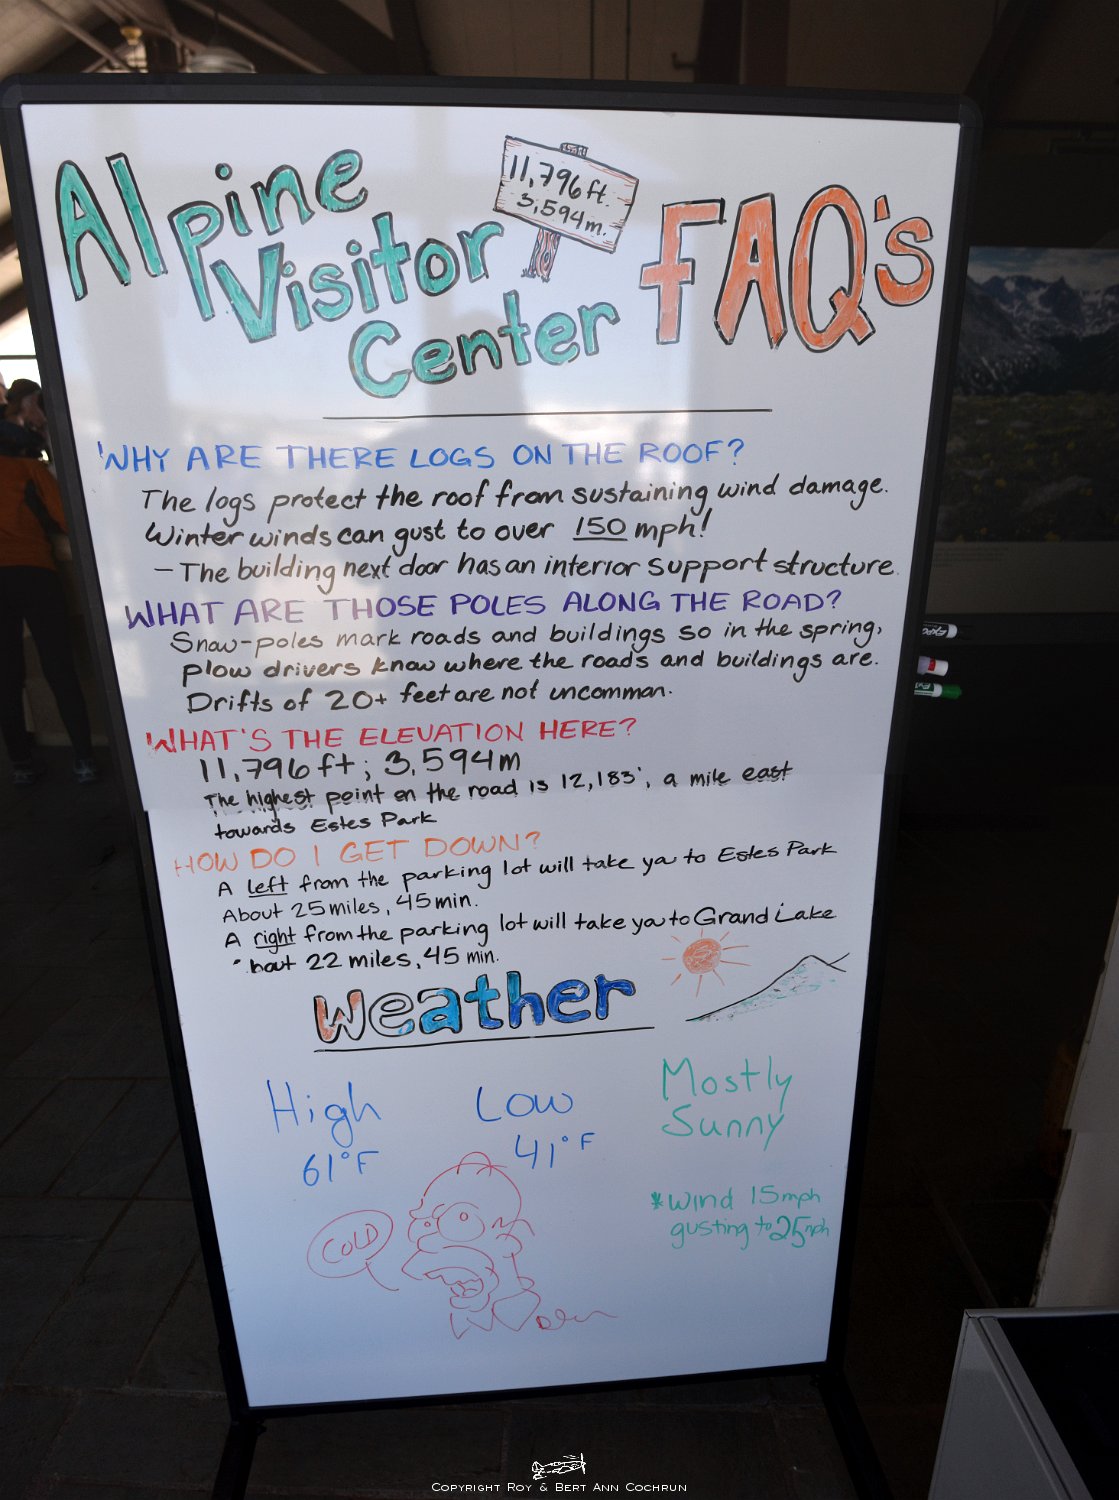 Alpine
Visitor
Center
11,796 ft.
3,594 m.
FAQ's
WHY ARE THERE LOGS ON THE ROOF?
The logs protect the roof from sustaining wind damage.
Winter winds can gust to over 150 mph!
- The building next door has an interior support structure.
WHAT ARE THOSE POLES ALONG THE ROAD?
Snow-poles mark roads and buildings so in the spring,
plow drivers know where the roads and buildings are.
Drifts of 20+ feet are not uncommon.
WHAT'S THE ELEVATION HERE?
11,796 ft; 3,594 m
The highest point on the road is 12,183', a mile east
towards Estes Park
HOW DO I GET DOWN?
A left from the parking lot will take you to Estes Park
About 25 miles, 45 min.
A right from the parking lot will take you to Grand Lake
bout 22 miles, 45 min.
Weather
High
61°F
Low
41°F
Mostly
Sunny
*wind 15mph
gusting to 25mph
COLD
EXPO
COPYRIGHT ROY & BERT ANN COCHRUN